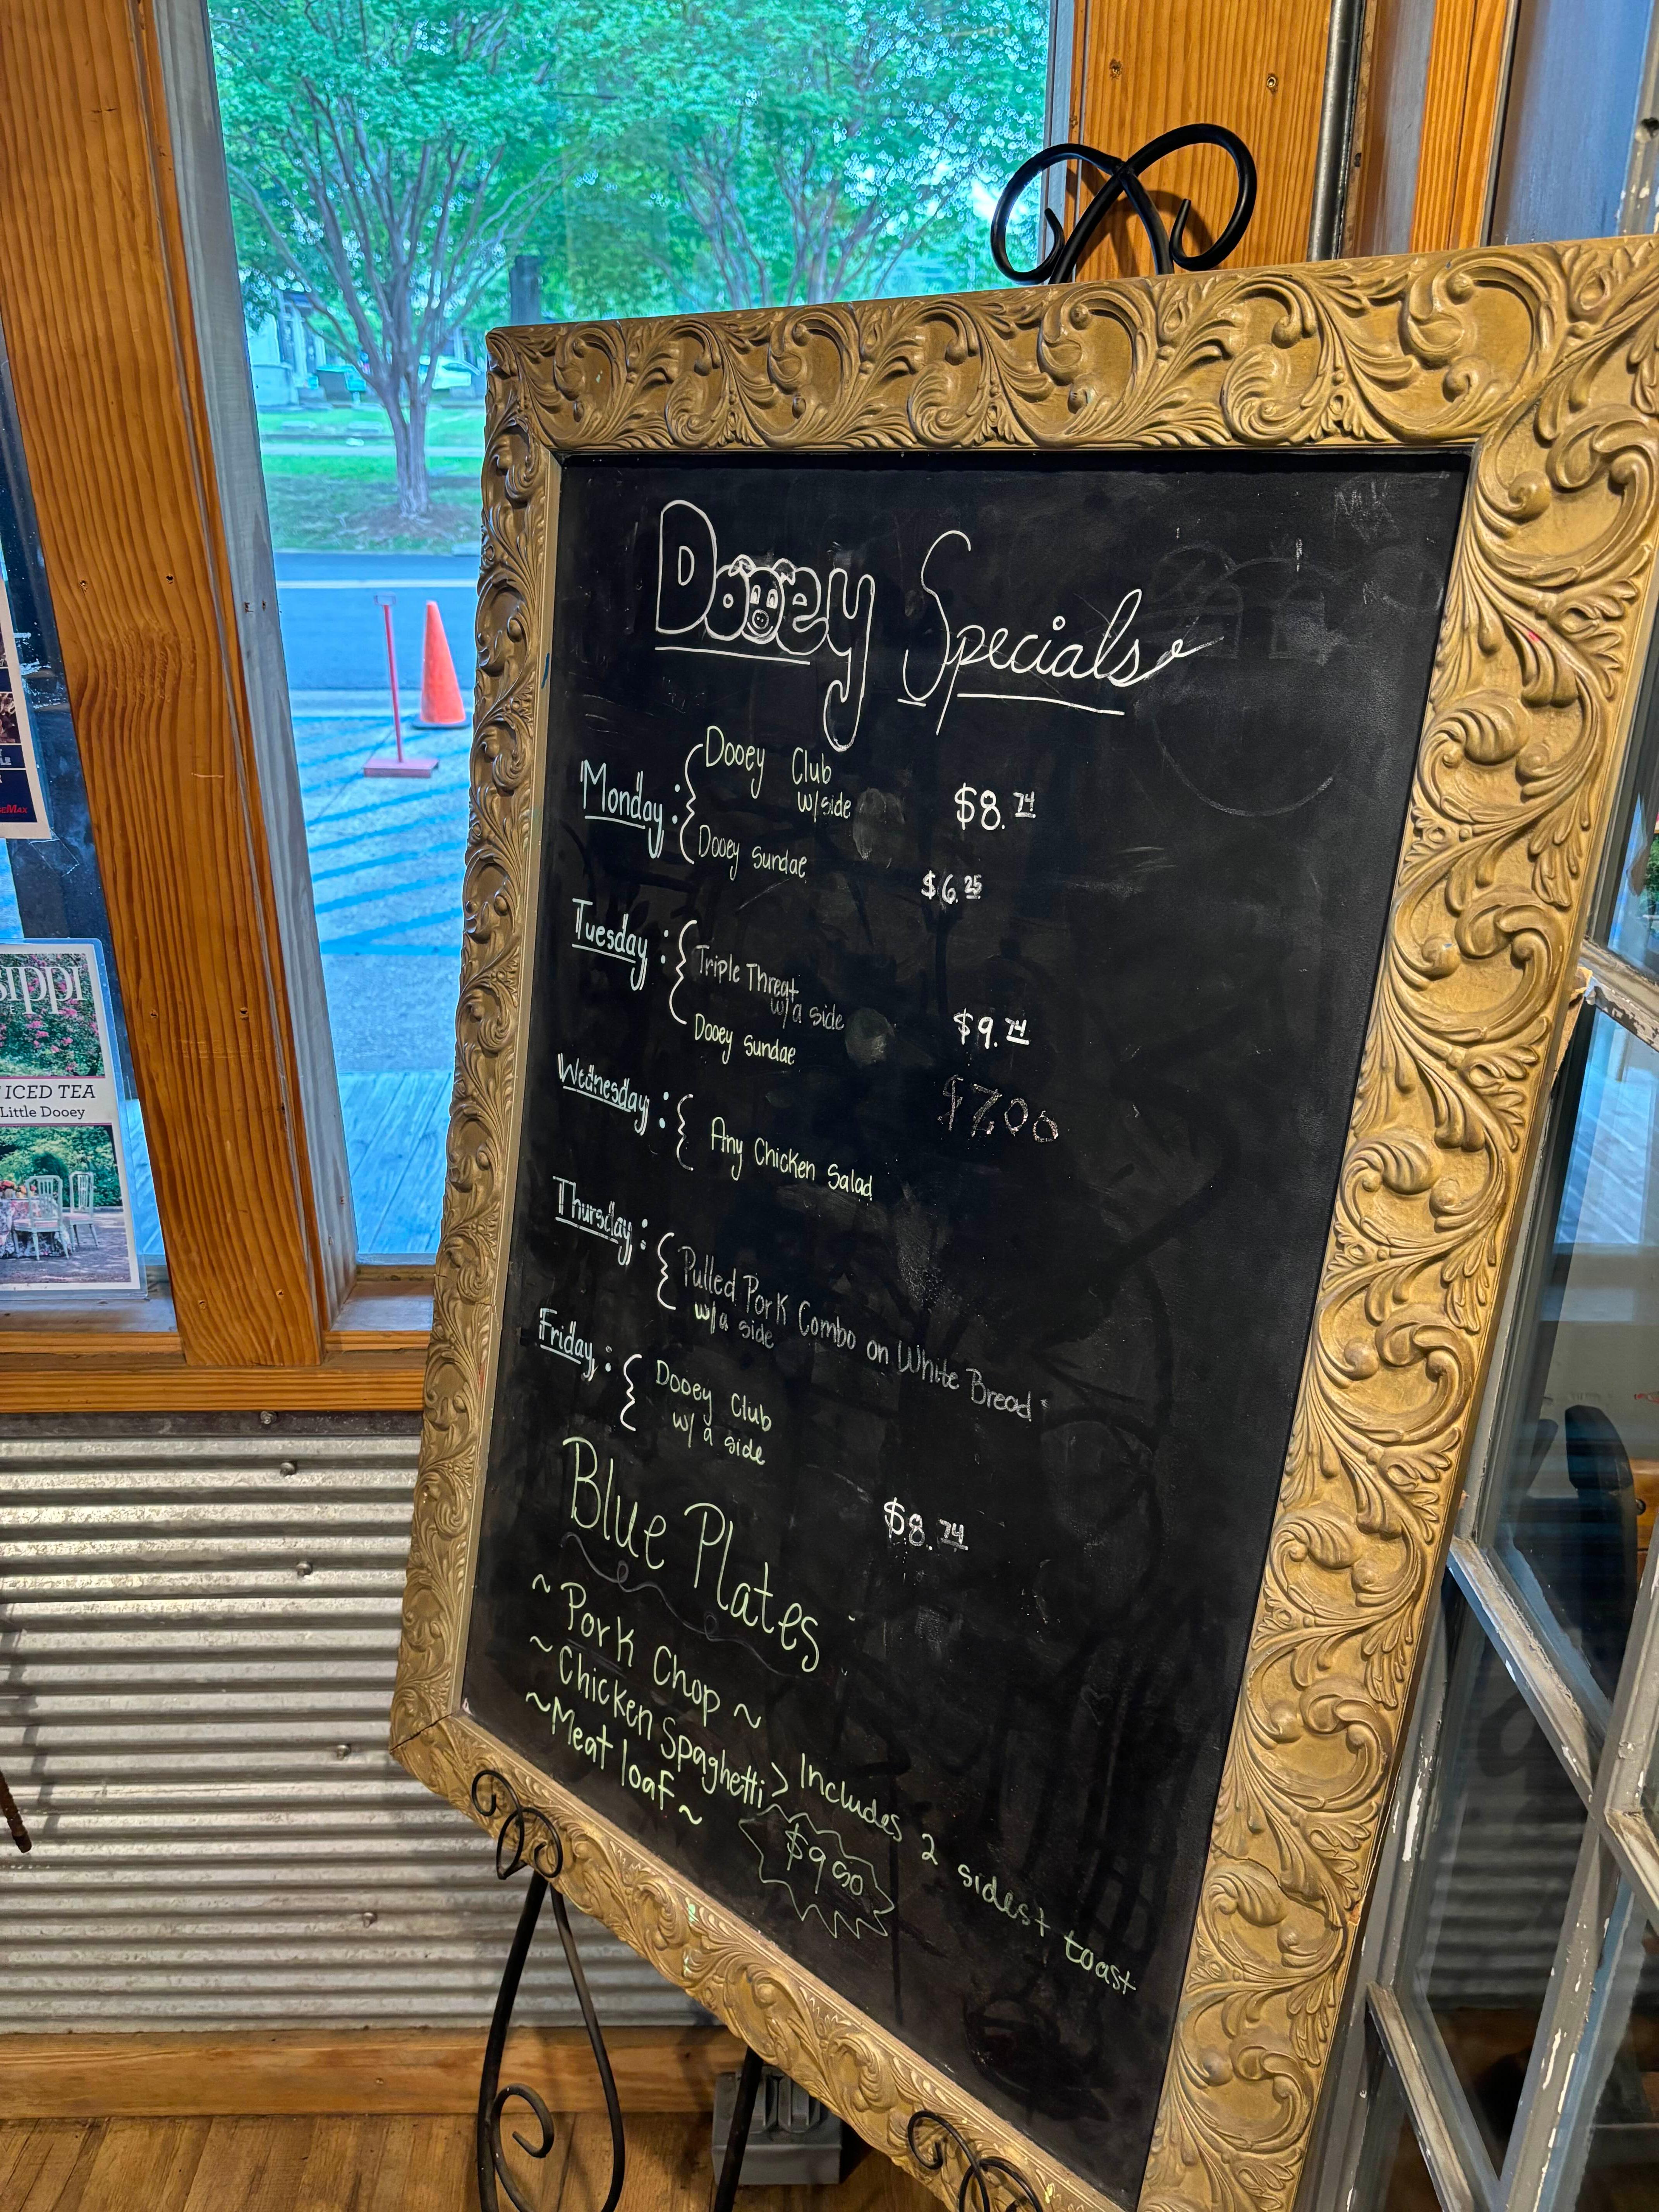 Dooey Specials
Monday: Dooey Club
w/side $8.74
Dooey Sundae $6.25
Tuesday: Triple Threat
w/a side $9.74
Dooey Sundae
$7.00
Wednesday: Any Chicken Salad
Thursday: Pulled Pork Combo on White Bread
w/a side
Friday: Dooey Club
w/ a side
$8.74
Blue Plates
~ Pork Chop ~
~ Chicken Spaghetti > Includes 2 sides + toast
~ Meat loaf ~
SIPPI
ICED TEA
Little Dooey